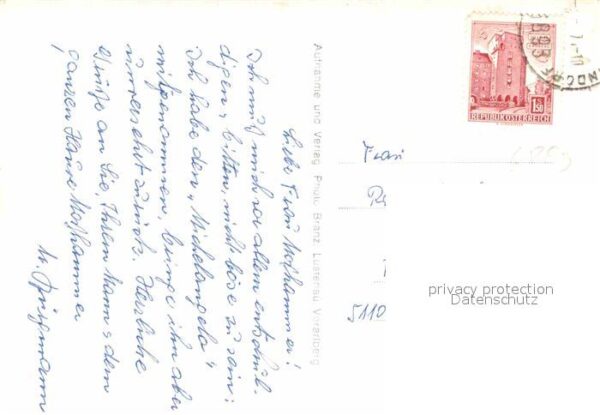 Liebe Frau Moshammer!
Ich muß mich vor allem entschul-
digen, bitte, nicht böse zu sein:
Ich habe den „Michelangelo“
mitgenommen, bringe ihn aber
unversehrt zurück. Herzliche
Grüße an Sie, Ihren Mann u. dem
ganzen Hause Moshammer
Aufnahme und Verlag Photo Branz, Lustenau Vorarlberg
1.50
REPUBLIK ÖSTERREICH
Frau
5110
privacy protection
Datenschutz